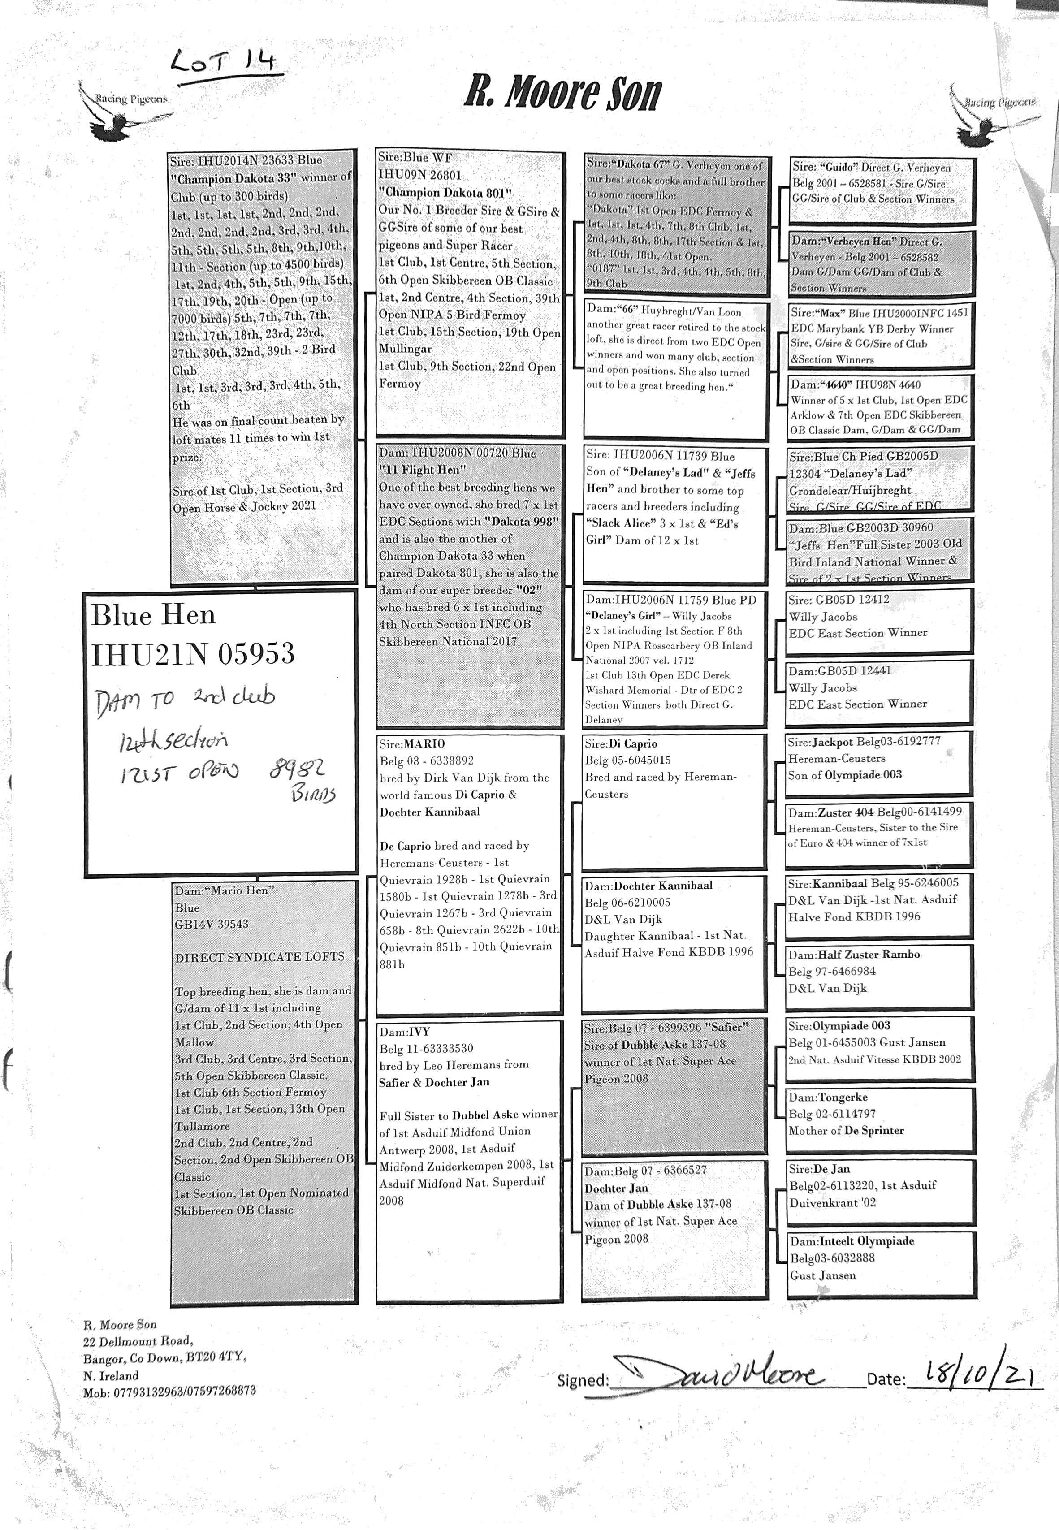 LOT 14
Racing Pigeons
R. Moore Son
Racing Pigeons
Sire: IHU2014N 23633 Blue
"Champion Dakota 33" winner of
Club (up to 300 birds)
1st, 1st, 1st, 1st, 2nd, 2nd, 2nd,
2nd, 2nd, 2nd, 2nd, 3rd, 3rd, 4th,
5th, 5th, 5th, 5th, 8th, 9th, 10th,
11th - Section (up to 4500 birds)
1st, 2nd, 4th, 5th, 5th, 9th, 15th,
17th, 19th, 20th - Open (up to
7000 birds) 5th, 7th, 7th, 7th,
12th, 17th, 18th, 23rd, 23rd,
27th, 30th, 32nd, 39th - 2 Bird
Club
1st, 1st, 3rd, 3rd, 3rd, 4th, 5th,
6th
He was on final count beaten by
loft mates 11 times to win 1st
prize.
Sire of 1st Club, 1st Section, 3rd
Open Horse & Jockey 2021
Blue Hen
IHU21N 05953
DAM TO 2nd club
12th section
121ST OPEN 8982
BIRDS
Dam:"Mario Hen"
Blue
GB14V 39543
DIRECT SYNDICATE LOFTS
Top breeding hen, she is dam and
G/dam of 11 x 1st including
1st Club, 2nd Section, 4th Open
Mallow
3rd Club, 3rd Centre, 3rd Section,
5th Open Skibbereen Classic,
1st Club 6th Section Fermoy
1st Club, 1st Section, 13th Open
Tullamore
2nd Club, 2nd Centre, 2nd
Section, 2nd Open Skibbereen OB
Classic
1st Section, 1st Open Nominated
Skibbereen OB Classic
Sire:Blue WF
IHU09N 26801
"Champion Dakota 801"
Our No. 1 Breeder Sire & GSire &
GGSire of some of our best
pigeons and Super Racer
1st Club, 1st Centre, 5th Section,
6th Open Skibbereen OB Classic
1st, 2nd Centre, 4th Section, 39th
Open NIPA 5 Bird Fermoy
1st Club, 15th Section, 19th Open
Mullingar
1st Club, 9th Section, 22nd Open
Fermoy
Dam: IHU2008N 00720 Blue
"11 Flight Hen"
One of the best breeding hens we
have ever owned, she bred 7 x 1st
EDC Sections with "Dakota 998"
and is also the mother of
Champion Dakota 33 when
paired Dakota 801, she is also the
dam of our super breeder "02"
who has bred 6 x 1st including
4th North Section INFC OB
Skibbereen National 2017
Sire:MARIO
Belg 08 - 6338892
bred by Dirk Van Dijk from the
world famous Di Caprio &
Dochter Kannibaal
De Caprio bred and raced by
Heremans Ceusters - 1st
Quievrain 1928b - 1st Quievrain
1580b - 1st Quievrain 1278b - 3rd
Quievrain 1267b - 3rd Quievrain
658b - 8th Quievrain 2622b - 10th
Quievrain 851b - 10th Quievrain
881b
Dam:IVY
Belg 11-63333530
bred by Leo Heremans from
Safier & Dochter Jan
Full Sister to Dubbel Aske winner
of 1st Asduif Midfond Union
Antwerp 2008, 1st Asduif
Midfond Zuiderkempen 2008, 1st
Asduif Midfond Nat. Superduif
2008
Sire:"Dakota 67" G. Verheyen one of
our best stock cocks and a full brother
to some racers like:
"Dakota" 1st Open EDC Fermoy &
1st, 1st, 1st, 4th, 7th, 8th Club, 1st,
2nd, 4th, 8th, 8th, 17th Section & 1st,
8th, 10th, 18th, 41st Open.
"0187" 1st, 1st, 3rd, 4th, 4th, 5th, 8th,
9th Club
Dam:"66" Huybreght/Van Loon
another great racer retired to the stock
loft, she is direct from two EDC Open
winners and won many club, section
and open positions. She also turned
out to be a great breeding hen."
Sire: IHU2006N 11739 Blue
Son of "Delaney's Lad" & "Jeffs
Hen" and brother to some top
racers and breeders including
"Slack Alice" 3 x 1st & "Ed's
Girl" Dam of 12 x 1st
Dam:IHU2006N 11759 Blue PD
"Delaney's Girl" – Willy Jacobs
2 x 1st including 1st Section F 8th
Open NIPA Rosscarbery OB Inland
National 2007 vel. 1712
1st Club 13th Open EDC Derek
Wishard Memorial - Dtr of EDC 2
Section Winners both Direct G.
Delaney
Sire:Di Caprio
Belg 05-6045015
Bred and raced by Hereman-
Ceusters
Dam:Dochter Kannibaal
Belg 06-6210005
D&L Van Dijk
Daughter Kannibaal - 1st Nat.
Asduif Halve Fond KBDB 1996
Sire:Belg 07 - 6399396 "Safier"
Sire of Dubble Aske 137-08
winner of 1st Nat. Super Ace
Pigeon 2008
Dam:Belg 07 - 6366527
Dochter Jan
Dam of Dubble Aske 137-08
winner of 1st Nat. Super Ace
Pigeon 2008
Sire: "Guido" Direct G. Verheyen
Belg 2001 – 6528581 - Sire G/Sire
GG/Sire of Club & Section Winners
Dam:"Verheyen Hen" Direct G.
Verheyen - Belg 2001 – 6528582
Dam G/Dam GG/Dam of Club &
Section Winners
Sire:"Max" Blue IHU2000INFC 1451
EDC Marybank YB Derby Winner
Sire, G/sire & GG/Sire of Club
&Section Winners
Dam:"4640" IHU98N 4640
Winner of 5 x 1st Club, 1st Open EDC
Arklow & 7th Open EDC Skibbereen
OB Classic Dam, G/Dam & GG/Dam
Sire:Blue Ch Pied GB2005D
12304 "Delaney's Lad"
Grondelear/Huijbreght
Sire, G/Sire, GG/Sire of EDC
Dam:Blue GB2003D 30960
"Jeffs Hen"Full Sister 2003 Old
Bird Inland National Winner &
Sire of 2 x 1st Section Winners
Sire: GB05D 12412
Willy Jacobs
EDC East Section Winner
Dam:GB05D 12441
Willy Jacobs
EDC East Section Winner
Sire:Jackpot Belg03-6192777
Hereman-Ceusters
Son of Olympiade 003
Dam:Zuster 404 Belg00-6141499
Hereman-Ceusters, Sister to the Sire
of Euro & 404 winner of 7x1st
Sire:Kannibaal Belg 95-6246005
D&L Van Dijk -1st Nat. Asduif
Halve Fond KBDB 1996
Dam:Half Zuster Rambo
Belg 97-6466984
D&L Van Dijk
Sire:Olympiade 003
Belg 01-6455003 Gust Jansen
2nd Nat. Asduif Vitesse KBDB 2002
Dam:Tongerke
Belg 02-6114797
Mother of De Sprinter
Sire:De Jan
Belg02-6113220, 1st Asduif
Duivenkrant '02
Dam:Inteelt Olympiade
Belg03-6032888
Gust Jansen
R. Moore Son
22 Dellmount Road,
Bangor, Co Down, BT20 4TY,
N. Ireland
Mob: 07793132963/07597268873
Signed: David Moore Date: 18/10/21